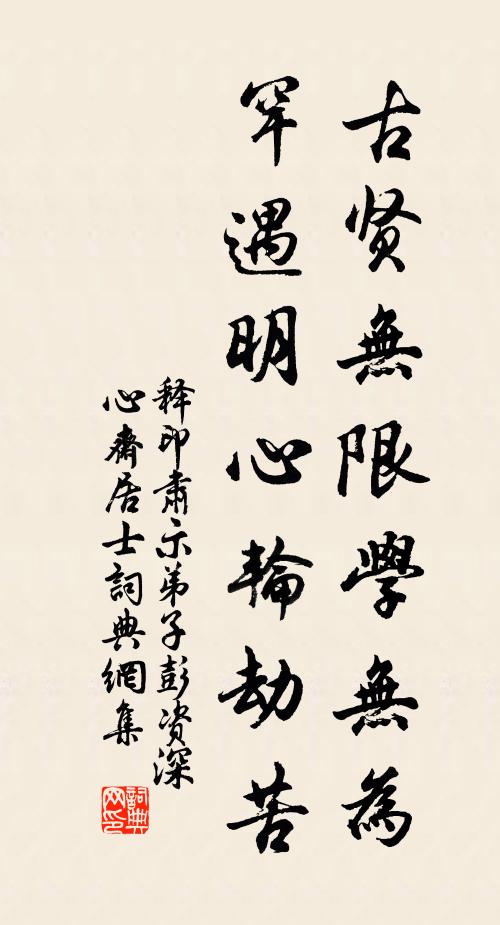 古贤無限學無為
罕遇明心輪劫苦
释印肃示弟子彭资深
心齋居士詞典網集
詞典网印